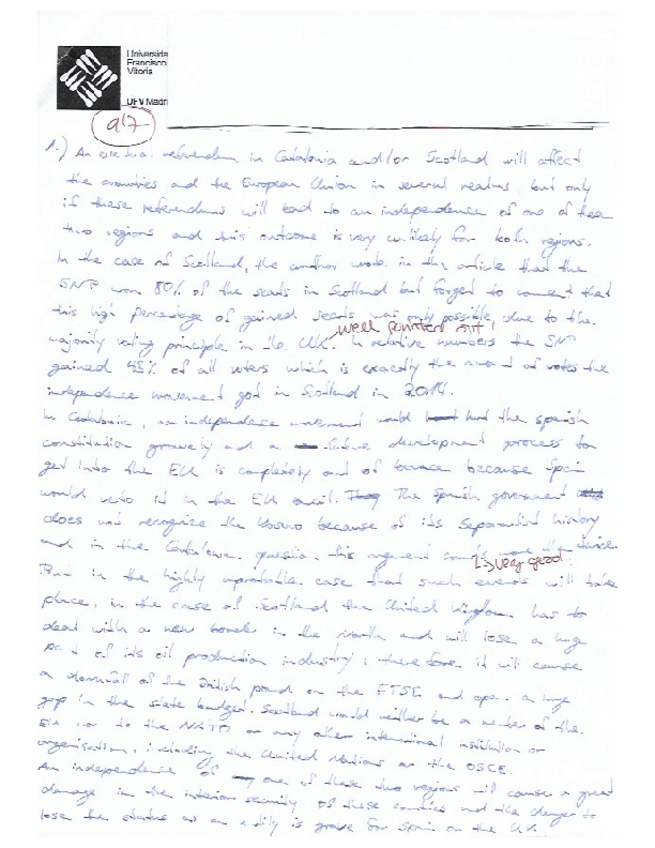 Universida
Francisco
Vitoria
UFV Madri
9'7
1.) An eventual referendum in Catalonia and/or Scotland will affect
the countries and the European Union in several realms, but only
if these referendums will lead to an independence of one of these
two regions and this outcome is very unlikely for both regions.
In the case of Scotland, the author wrote in the article that the
SNP won 80% of the seats in Scotland but forgot to comment that
this high percentage of gained seats was only possible due to the
well pointed out!
majority voting principle in the UK. In relative numbers the SNP
gained 45% of all voters which is exactly the amount of votes the
independence movement got in Scotland in 2014.
In Catalonia, an independence movement would hurt the spanish
constitution gravely and a future development process to
get into the EU is completely out of because Spain
would veto it in the EU The Spanish government
does not recognize the Kosovo because of its separatist history
and in the question, this argument counts more than twice.
very good!
But in the highly improbable case that such events will take
place, in the case of Scotland the United Kingdom has to
deal with a new border in the North and will lose a huge
part of its oil production industry; therefore it will cause
a downfall of the British pound on the FTSE and open a huge
gap in the state budget. Scotland would neither be a member of the
EU nor to the NATO or any other international institution or
organisation, including the United Nations or the OSCE.
An independence of one of these two regions will cause a great
damage in the interior security of these countries and the danger to
lose the status as an entity is grave for Spain or the UK.